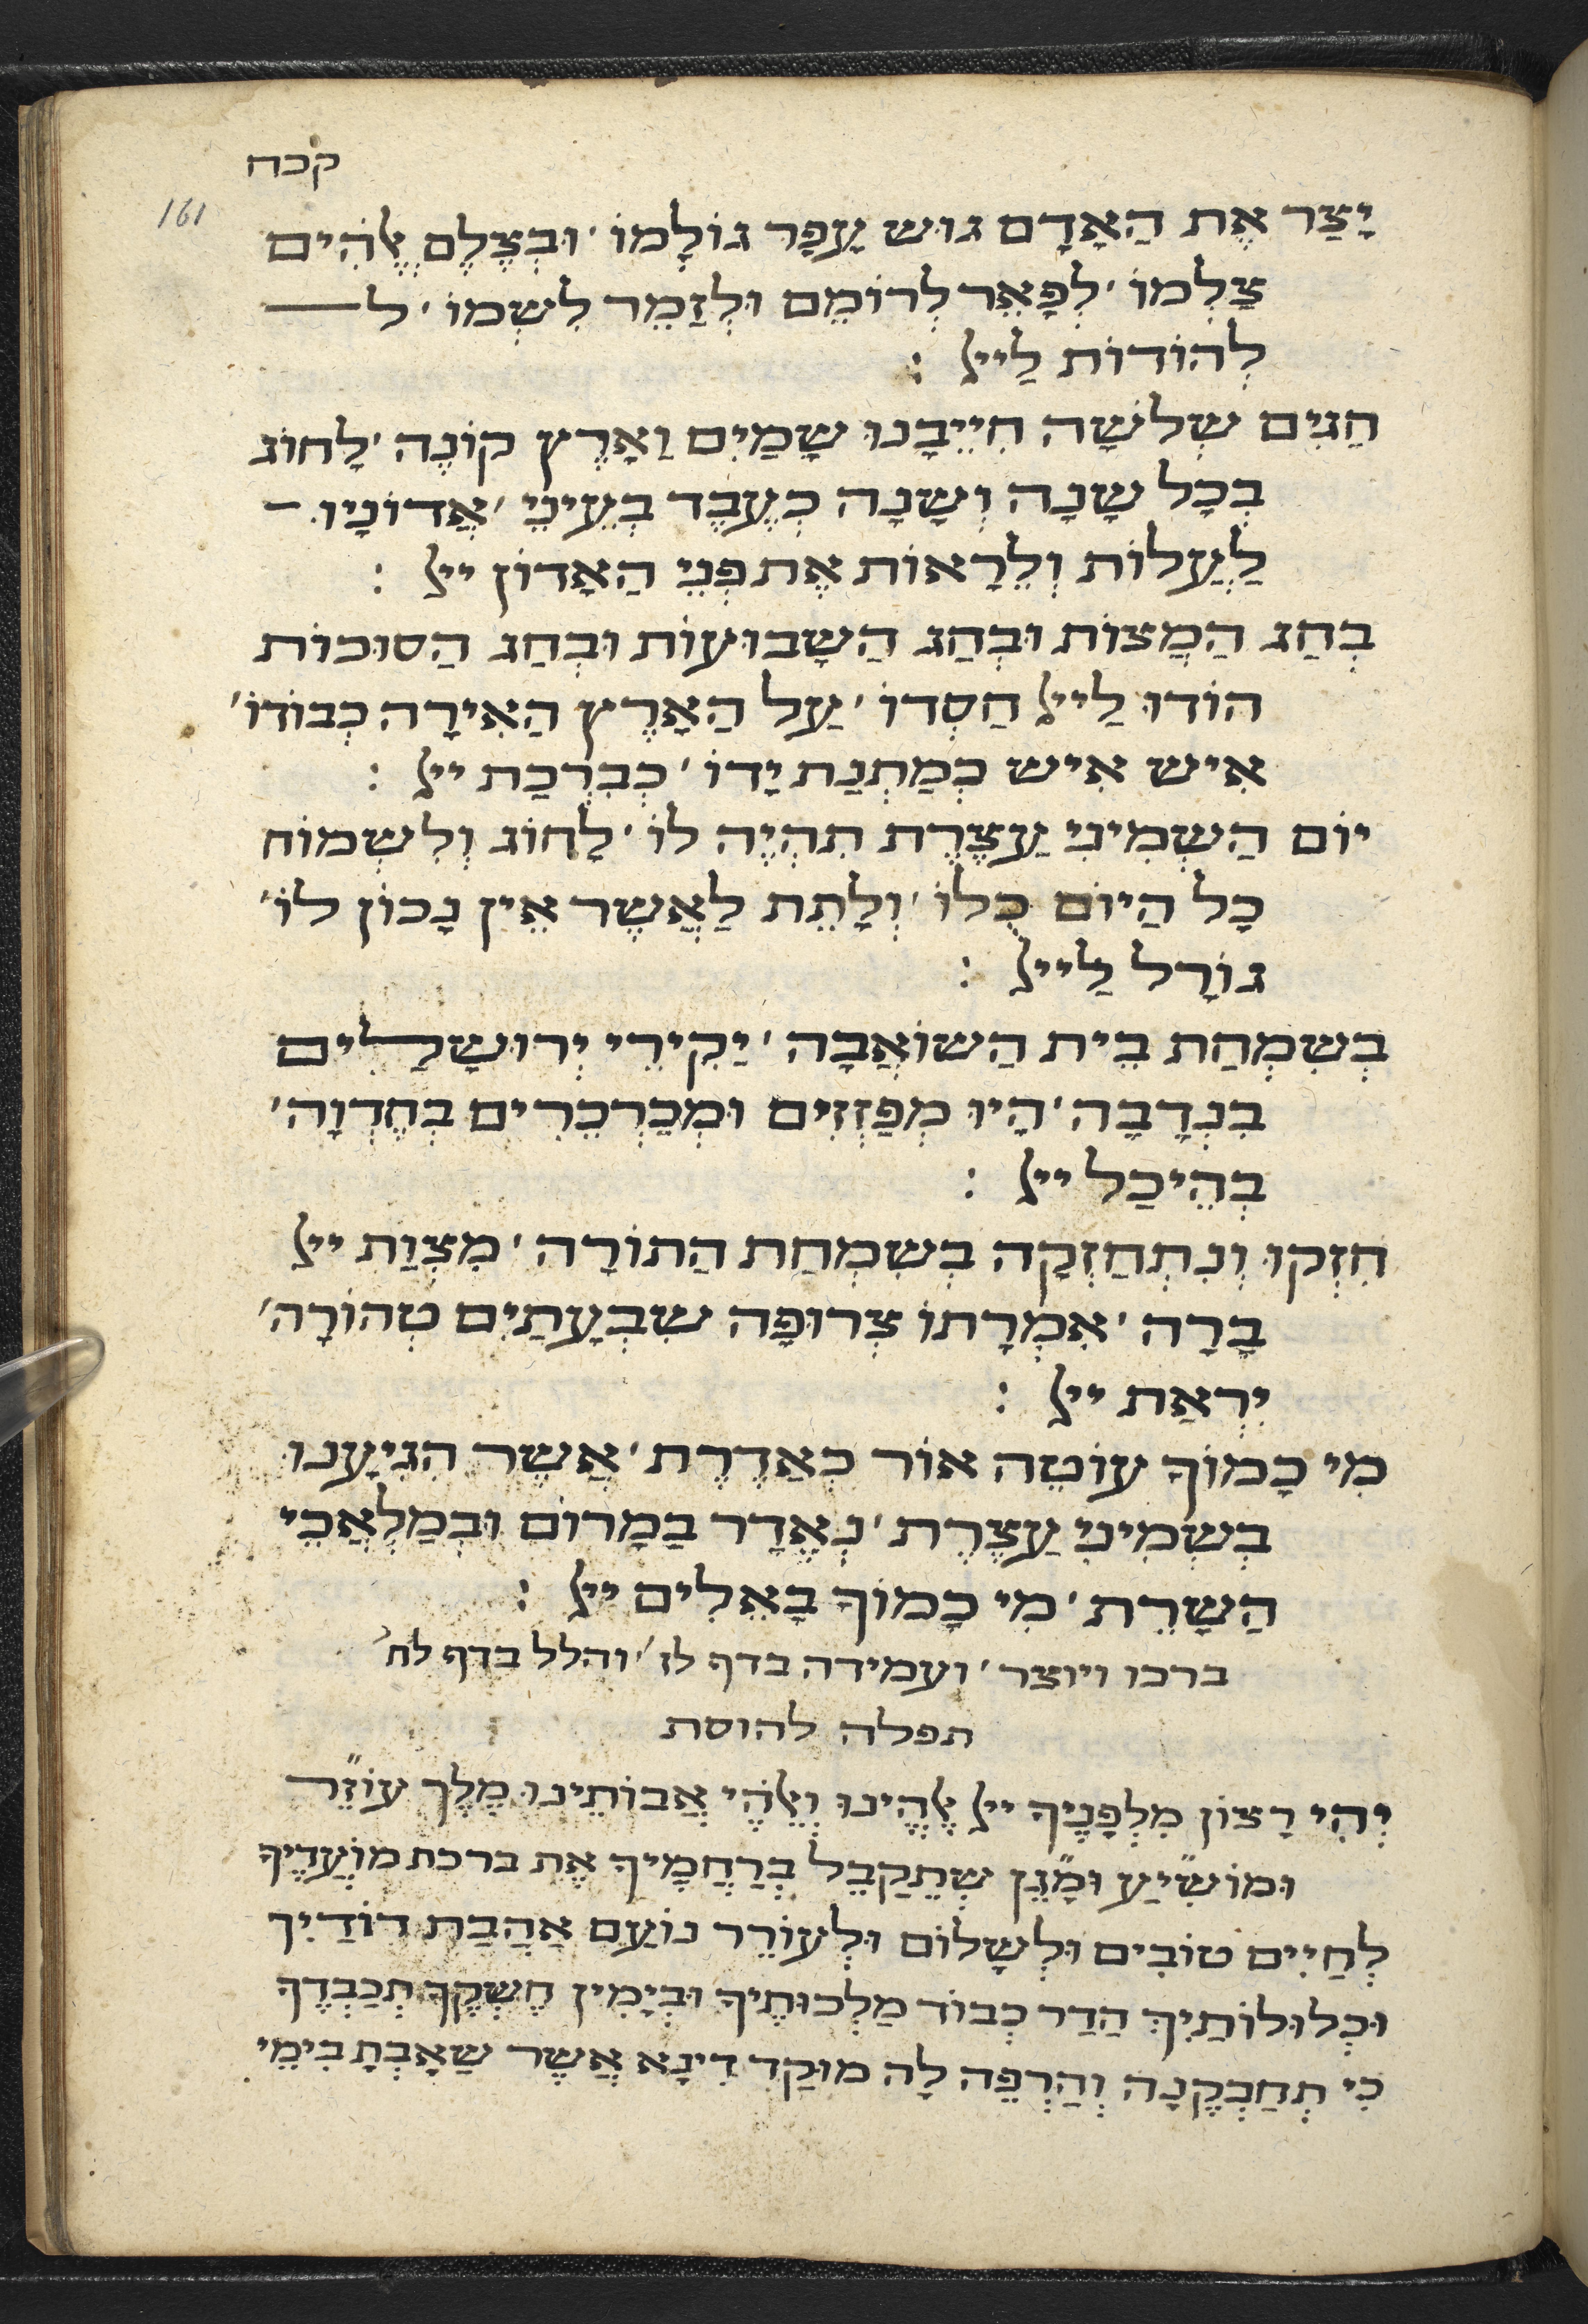 קכח
161
יָצַר אֶת הַאָדָם גוּש עָפָר גוֹלָמוֹ ׳ וּבְצֶלֶם אֱלֹהִים
צַלְמוֹ ׳ לְפָאֵר לְרוֹמֵם וּלְזַמֵר לִשְמוֹ ׳ ל
לְהוֹדוֹת לַייי :
חַגִים שְלשָה חִיֵיבָנוּ שָמַיִם וַאָרֶץ קוֹנֶה ׳ לָחוֹג
בְכָל שָנָה וְשָנָה כְעֶבֶד בְעֵינֵי ׳ אֲדוֹנָיו
לַעֲלוֹת וְלֵרָאוֹת אֶת פְנֵי הַאָדוֹן ייי :
בְחַג הַמַצוֹת וּבְחַג הַשָבוּעוֹת וּבְחַג הַסוּכּוֹת
הוֹדוּ לַייי חַסְדוֹ ׳ עַל הַאָרֶץ הַאִירָה כְבוֹדוֹ ׳
אִיש אִיש כְמַתְנַת יָדוֹ ׳ כְבִרְכַת ייי :
יוֹם הַשְמִינִי עַצֶרֶת תִהְיֶה לוֹ ׳ לָחוֹג וְלִשְמוֹח
כָל הַיוֹם כֻלוֹ ׳ וְלָתֵת לַאֲשֶר אֵין נָכוֹן לוֹ ׳
גוֹרָל לַייי :
בְשִמְחַת בֵית הַשוֹאֲבָה ׳ יַקִירֵי יְרוּשָלַיִם
בִנְדָבָה ׳ הָיוּ מְפַזְזִים וּמְכַרְכֵרִים בְחֶדְוָה ׳
בְהֵיכַל ייי :
חִזְקוּ וְנִתְחַזְקָה בְשִמְחַת הַתוֹרָה ׳ מִצְוַת ייי
בָרָה ׳ אִמְרָתוֹ צְרוּפָה שִבְעָתַיִם טְהוֹרָה ׳
יִרְאַת ייי :
מִי כָמוֹךָ עוֹטֶה אוֹר כְאַדֶרֶת ׳ אֲשֶר הִגִיעָנוּ
בִשְמִינִי עַצֶרֶת ׳ נֶאֱדָר בַמָרוֹם וּבְמַלְאֲכֵי
הַשָרֵת ׳ מִי כָמוֹךָ בָאֵלִים ייי :
ברכו ויוצר ׳ ועמידה בדף לז ׳ והלל בדף לח
תפלה להוסת
יְהִי רָצוֹן מִלְפָנֶיךָ ייי אֱלֹהֵינוּ וֵאלֹהֵי אֲבוֹתֵינוּ מֶלֶךְ עוֹזֵר
וּמוֹשִיַע וּמָגֵן שֶתְקַבֵל בְרַחֲמֶיךָ אֶת ברכת מוֹעֲדֶיךָ
לְחַיִים טוֹבִים וּלְשָלוֹם וּלְעוֹרֵר נוֹעַם אַהֲבַת דוֹדַיִךְ
וּכְלוּלוֹתַיִךְ הַדַר כְבוֹד מַלְכוּתֶיךָ וּבְיָמִין חֶשְקֶךָ תְכַבְדֶךָ
כִי תְחַבְקֶנָה וְהַרְפֵה לָה מוּקַד דִינָא אֲשֶר שַאָבְתָ בִימֵי